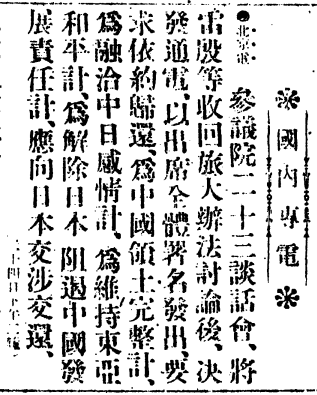 國內專電
●北京電
參議院二十三談話會、將
雷殷等收回旅大辦法討論後、決
發通電、以出席全體署名發出、要
求依約歸還、爲中國領土完整計、
爲融洽中日感情計、爲維持東亞
和平計、爲解除日本阻遏中國發
展責任計、應向日本交涉交還、